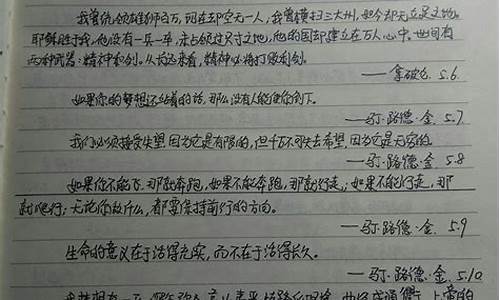 我曾统领雄师百万，现在却空无一人，我曾横扫三大州，如今却无立足之地。
耶稣胜于我，他没有一兵一卒，未占领过尺寸之地，他的国却建立在万人心中。世间有
两种武器：精神和剑。从长远来看，精神必将打败利剑。
——拿破仑 5.6
如果你的梦想还站着的话，那么没有人能使你倒下。
——马丁·路德·金 5.7
我们必须接受失望，因为它是有限的，但千万不可失去希望，因为它是无穷的。
——马丁·路德·金 5.8
如果你不能飞，那就奔跑，如果不能奔跑，那就行走；如果不能行走，那
就爬行；无论你做什么，都要保持前行的方向。
——马丁·路德·金 5.9
生命的意义在于活得充实，而不在于活得长久。
——马丁·路德·金 5.10
我梦想有一天